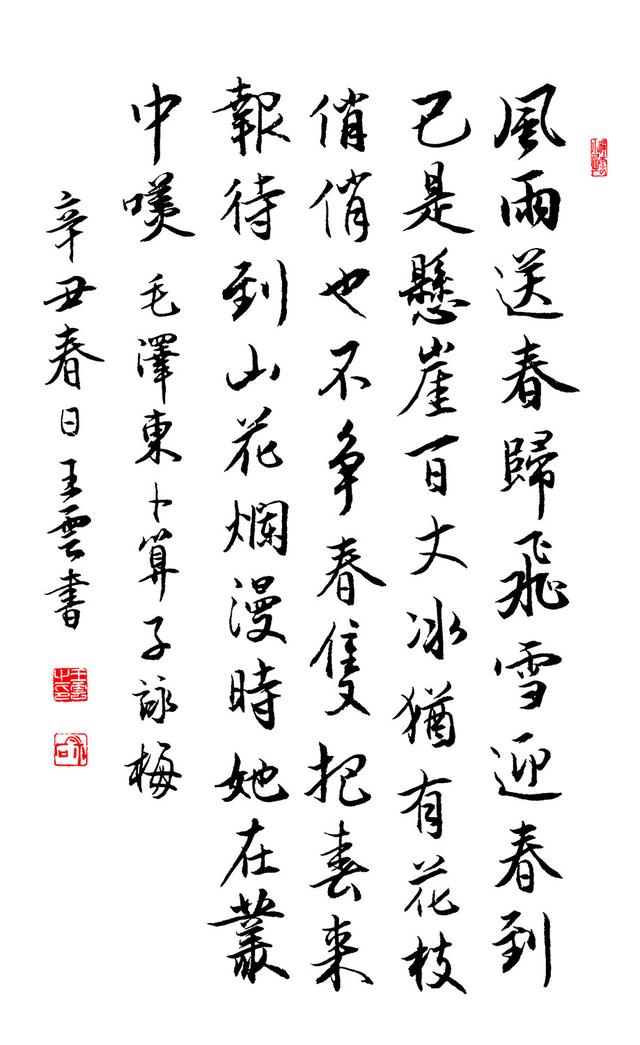 風雨送春歸飛雪迎春到
已是懸崖百丈冰猶有花枝
俏俏也不争春隻把春來
報待到山花爛漫時她在叢
中咲毛澤東卜算子詠梅
辛丑春日王雲書